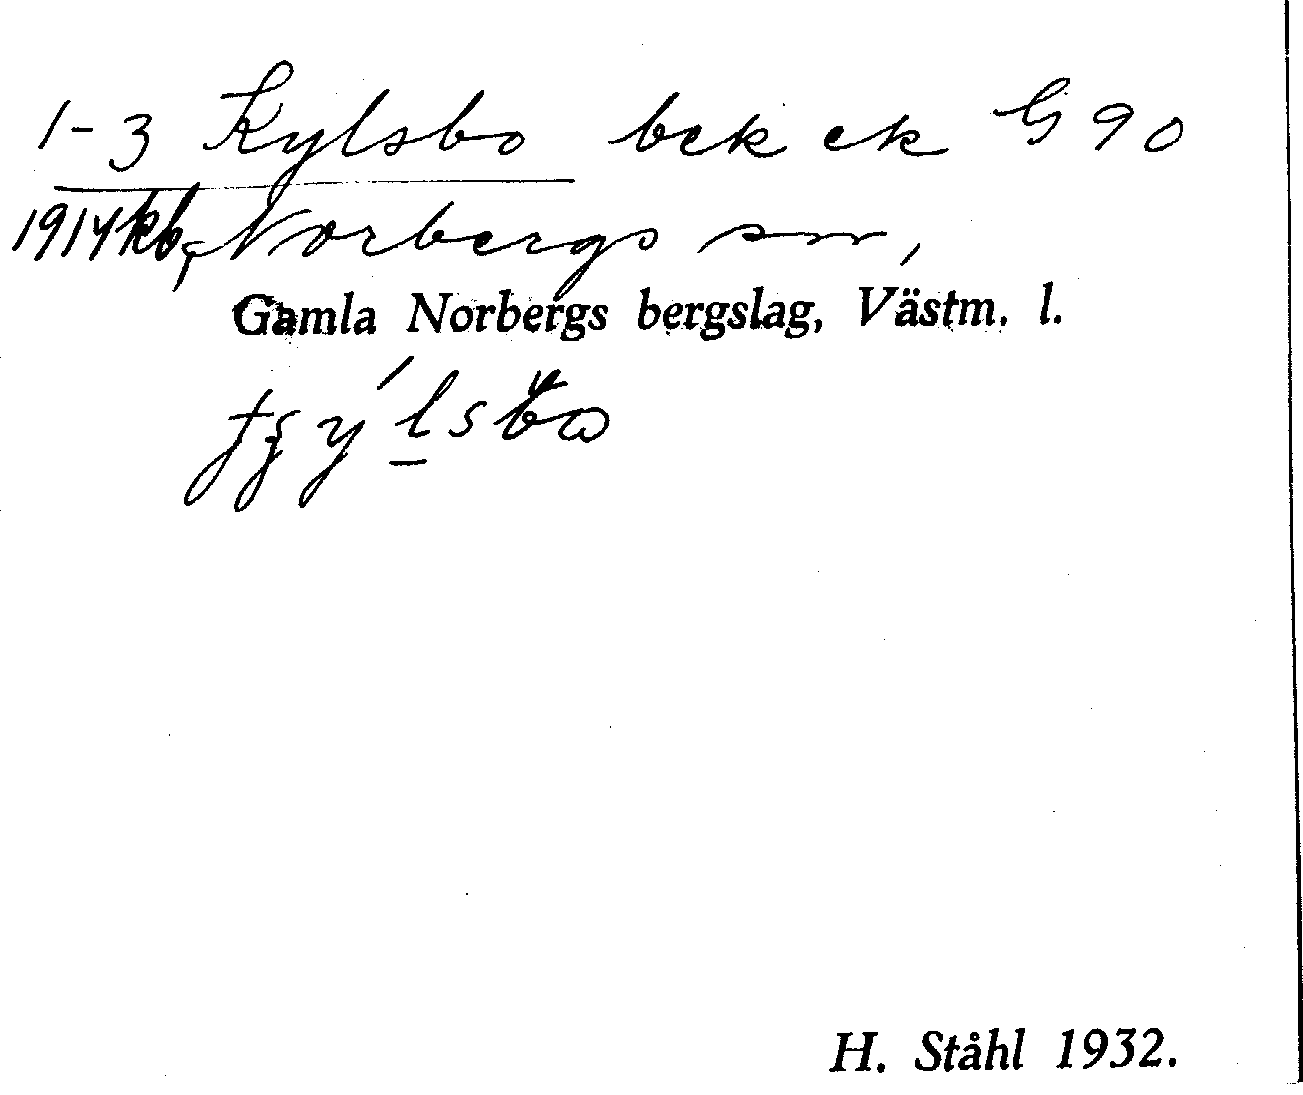 1-3 Kylsbo bek ek G 90
1914 kb, Norbergs sn,
Gamla Norbergs bergslag, Västm. l.
H. Ståhl 1932.